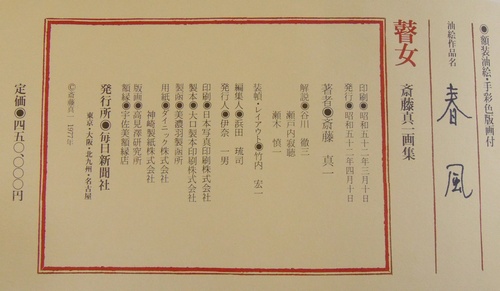 ●額装油絵・手彩色版画付
油絵作品名
春風
瞽女
斎藤真一画集
印刷●昭和五十二年三月十日
発行●昭和五十二年四月十日
著者●斎藤 真一
瀬戸内寂聴
解説●谷川 徹三
瀬木 慎一
装幀・レイアウト●竹内 宏一
編集人●浜田 琉司
発行人●伊奈 一男
印刷●日本写真印刷株式会社
製本●大口製本印刷株式会社
製函●美濃羽製函所
用紙●ダイニック株式会社
神崎製紙株式会社
版画●高見澤研究所
額縁●宇佐美額縁店
発行所●毎日新聞社
東京・大阪・北九州・名古屋
©斎藤真一 1977年
定価●四五〇、〇〇〇円